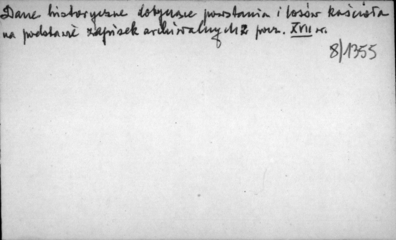 Dane historyczne dotyczące powstania i losów kościoła
na podstawie zapisek archiwalnych z pocz. XVII w.
8/1355